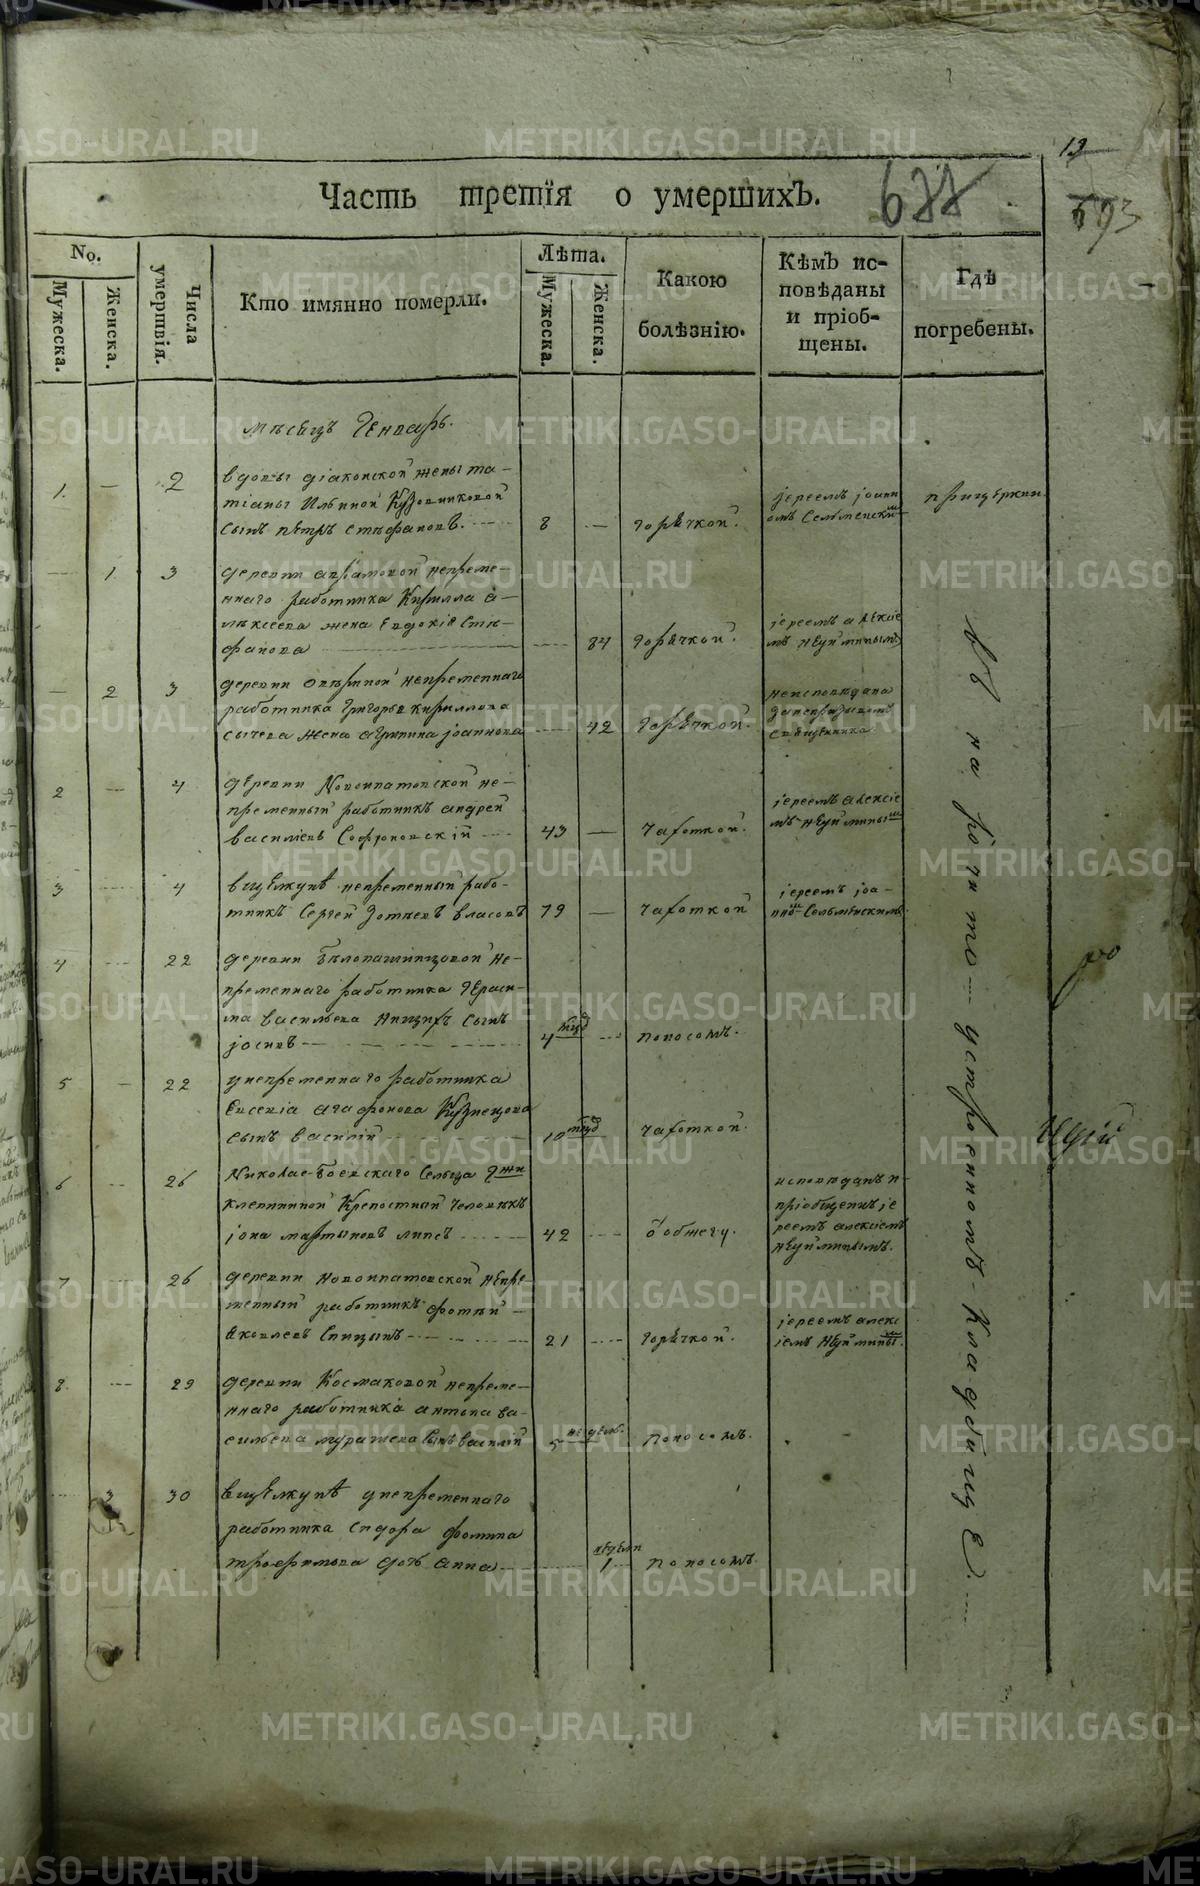 13
Часть третїя о умершихъ. 688
693
No.
Мужеска.
Женска.
Числа умертвія.
Кто имянно померли.
Лѣта.
Мужеска.
Женска.
Какою болѣзнію.
Кѣмъ исповѣданы и пріобщены.
Гдѣ погребены.
мѣсецъ Генварь.
1. — 2 вдовы діаконской жены та-
тіаны Ильиной Кузовниковой
сынъ петръ стефановъ. 8 — горѣчкой. іереемъ іоанн
омъ Сельменским при церкии
— 1 3 деревни аврамовой непреме-
ннаго работника Кирилла а-
лѣксеева жена Евдокіе Сте-
фанова 84 горѣчкой. іереемъ алексіе
мъ неуйминымъ
— 2 3 деревни непременнаго
работника Григорья кирилова
сычева жена агрипина іоаннова 42 горѣчкой. неисповѣдана
священника
2 — 4 деревни Новоипатовской не-
пременный работникъ андрей
василіевъ Софроновскій 43 — чахоткой. іереемъ алексіе
мъ неуйминым
3 — 4 вщелкунѣ непременный рабо-
тникъ Сергей Зотеевъ власовъ 79 — чахоткой іереемъ іоа-
нно Сельменскимъ
4 — 22 деревни Белопашинцовой не-
пременнаго работника Гераси-
ма васильева сынъ
іосивъ 4 поносомъ.
5 — 22 унепременнаго работника
Евсевіа агафонова Кузнецова
сынъ василій 10 чахоткой.
6 — 26 Николае-боевскаго сельца
Клевакиной Крепостный человѣкъ
іона мартыновъ 42 исповѣданъ и
пріобщенъ іе
реемъ алексіемъ
неуйминымъ.
7 — 26 деревни новоипатовской непре
менный работникъ фотѣй
яковлевъ Спицынъ 21 горѣчкой. іереемъ алексі
іемъ неуйминым.
8 — 29 деревни Космаковой непреме-
ннаго работника антона ва-
сильева муражева сынъ василій 5 недель. поносомъ.
3 30 вщелкунѣ унепременнаго
работника сидора фомина
трофимова дочь анна недели 1 поносомъ.
устроенномъ кладбище.